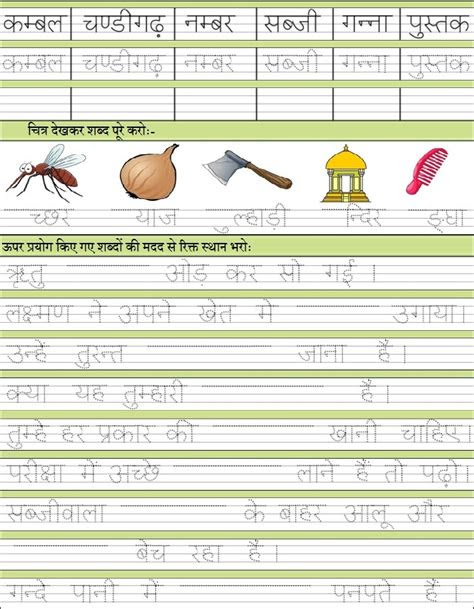 कम्बल चण्डीगढ़ नम्बर सब्जी गन्ना पुस्तक
कम्बल चण्डीगढ़ नम्बर सब्जी गन्ना पुस्तक
चित्र देखकर शब्द पूरे करोः-
च्छर याज ल्हाड़ी न्दिर ङ्घा
ऊपर प्रयोग किए गए शब्दों की मदद से रिक्त स्थान भरोः
ऋतु ओड़ कर सो गई ।
लक्ष्मण ने अपने खेत मे उगाया।
उन्हें तुरन्त जाना है ।
क्या यह तुम्हारी है ।
तुम्हे हर प्रकार की खानी चाहिए।
परीक्षा में अच्छे लाने हैं तो पढ़ो।
सब्जीवाला के बाहर आलू और
बेच रहा है ।
गन्दे पानी में पनपते हैं ।